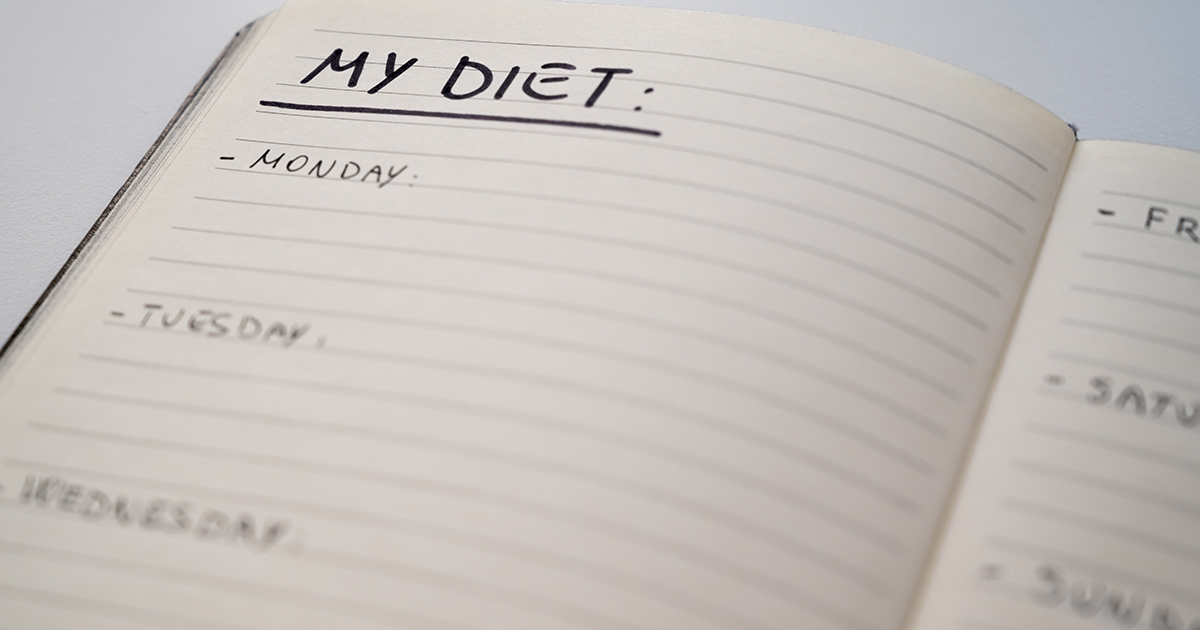 MY DIET:
- MONDAY:
- TUESDAY:
- WEDNESDAY:
- FR
- SATU
- SUND